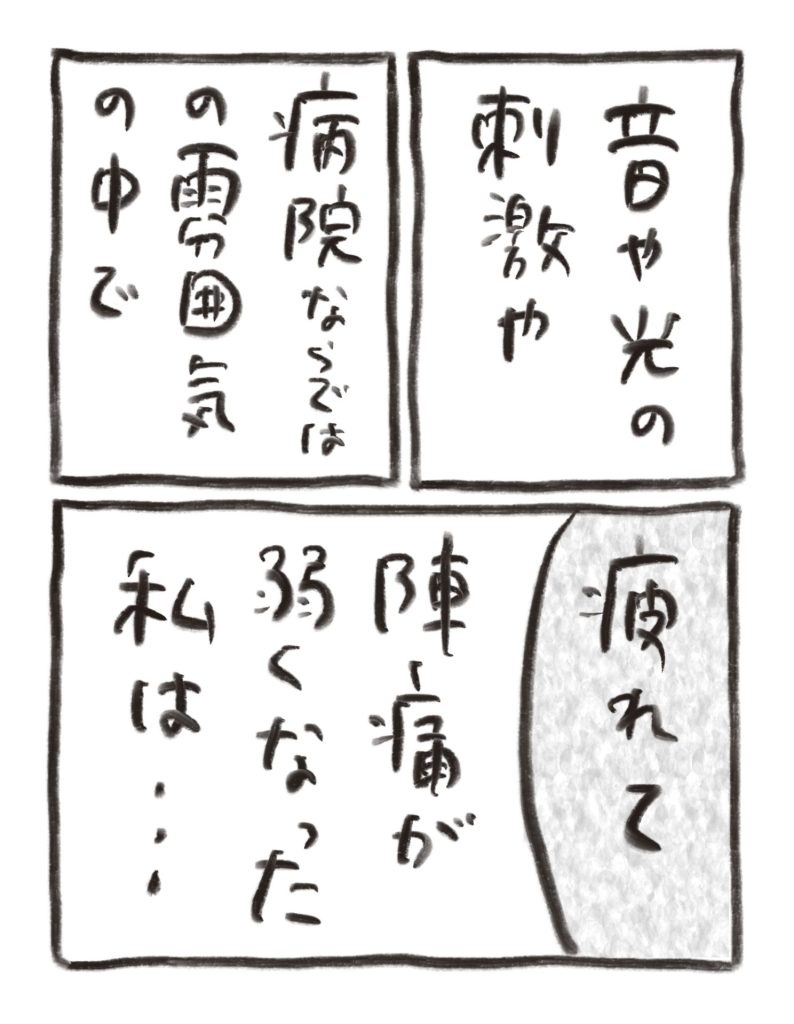 音や光の
刺激や
病院ならでは
の雰囲気
の中で
疲れて
陣痛が
弱くなった
私は…